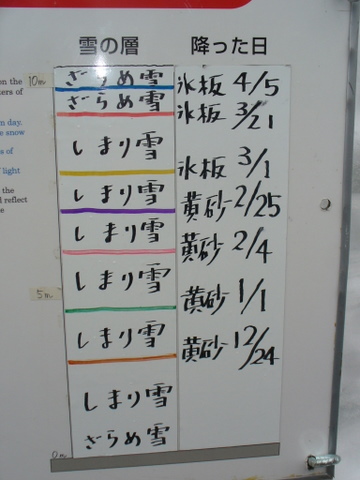 雪の層 降った日
10m ざらめ雪 氷板 4/5
ざらめ雪 氷板 3/21
しまり雪
氷板 3/1
しまり雪 黄砂 2/25
しまり雪 黄砂 2/4
しまり雪
5m 黄砂 1/1
しまり雪 黄砂 12/24
しまり雪
ざらめ雪
0m
en the
ters of
n day.
e snow
s of
f light
the
d reflect
e